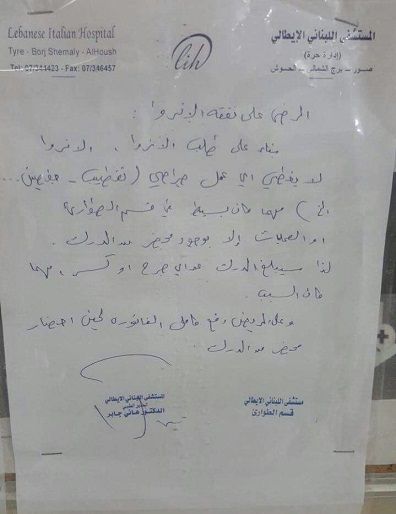 Lebanese Italian Hospital
Tyre - Borj Shemaly - AlHoush
Tel: 07/341423 - Fax: 07/346457
lih
المستشفى اللبناني الإيطالي
(إدارة حرة)
صور - برج الشمالي - الحوش
المرضى على نفقة الانروا :
بناء على طلب الانروا ، الانروا
لا يغطي اي عمل جراحي (تقطيب - جفصين...
الخ) مهما كان بسيط في قسم الطوارئ
او العمليات إلا بوجود محضر من الدرك .
لذا سيبلغ الدرك عن اي جرح او كسر ، مهما
كان السبب
وعلى المريض دفع كامل الفاتورة لحين احضار
محضر من الدرك
المستشفى اللبناني الإيطالي
الدكتور هاني جابر
مستشفى اللبناني الإيطالي
قسم الطوارئ